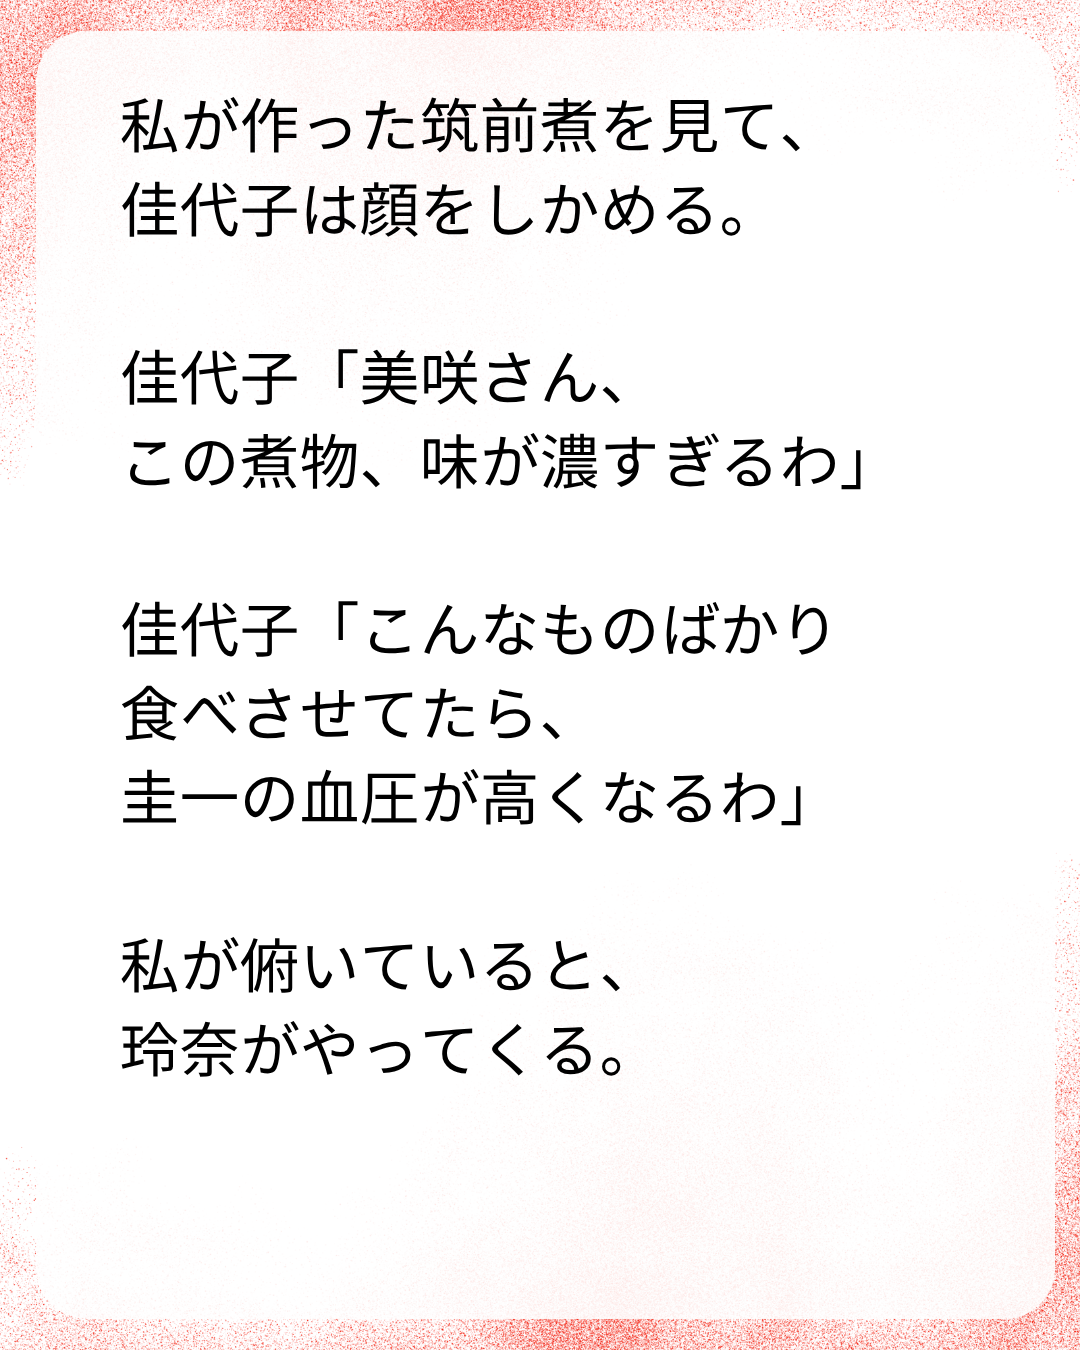 私が作った筑前煮を見て、
佳代子は顔をしかめる。
佳代子「美咲さん、
この煮物、味が濃すぎるわ」
佳代子「こんなものばかり
食べさせてたら、
圭一の血圧が高くなるわ」
私が俯いていると、
玲奈がやってくる。